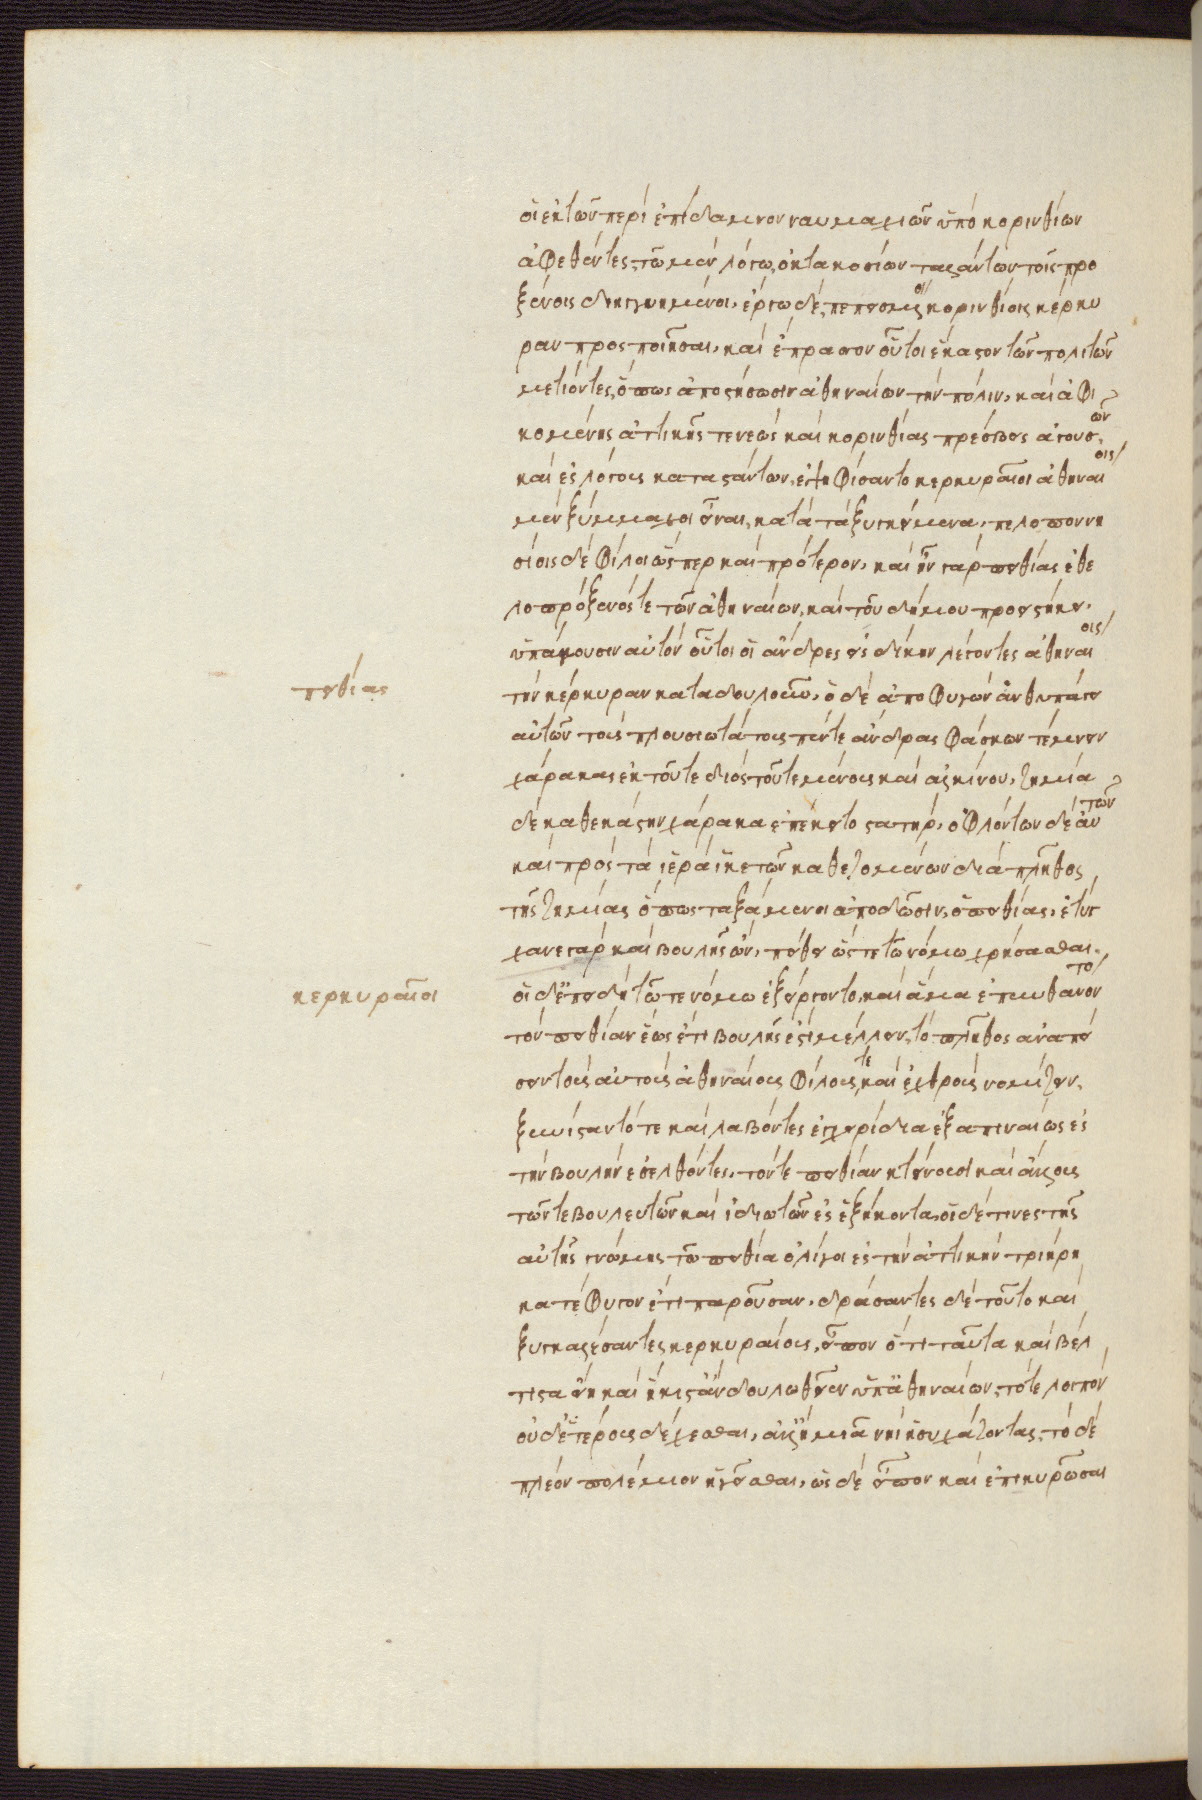 οἱ ἐκ τῶν περὶ ἐπίδαμνον ναυμαχιῶν ὑπὸ κορινθίων
ἀφεθέντες, τῶ μὲν λόγω, ὀκτακοσίων ταλάντων τοῖς προ
ξένοις διηγγυημένοι, ἔργω δὲ, πεπεισμένοι κορινθίοις κέρκυ
ραν προσποιῆσαι, καὶ ἔπρασσον οὗτοι ἕκαστον τῶν πολιτῶν
μετιόντες, ὅπως ἀποστήσωσιν ἀθηναίων τὴν πόλιν, καὶ ἀφι
κομένης ἀττικῆς τε νεὼς καὶ κορινθίας πρέσβεις ἀγουσῶν
καὶ ἐς λόγους καταστάντων, ἐψηφίσαντο κερκυραῖοι ἀθηναίοις
μὲν ξύμμαχοι εἶναι, κατὰ τὰ ξυγκείμενα, πελοποννη
σίοις δὲ φίλοι ὥσπερ καὶ πρότερον, καὶ ἦν γὰρ πειθίας ἐθε
λοπρόξενός τε τῶν ἀθηναίων, καὶ τοῦ δήμου προειστήκει.
ὑπάγουσιν αὐτὸν οὗτοι οἱ ἄνδρες εἰς δίκην λέγοντες ἀθηναίοις
πειθίας
τὴν κέρκυραν καταδουλοῦν, ὁ δὲ ἀποφυγὼν ἀνθυπάγει
αὐτῶν τοὺς πλουσιωτάτους πέντε ἄνδρας φάσκων τέμνειν
χάρακας ἐκ τοῦ τε διὸς τοῦ τεμένους καὶ ἀλκίνου, ζημία
δὲ καθ' ἑκάστην χάρακα ἐπέκειτο στατήρ, ὀφλόντων δὲ αὐτῶν
καὶ πρὸς τὰ ἱερὰ ἱκετῶν καθεζομένων διὰ πλῆθος
τῆς ζημίας ὅπως ταξάμενοι ἀποδῶσιν, ὁ πειθίας, ἐτύγ
χανε γὰρ καὶ βουλῆς ὢν, πείθει ὥστε τῶ νόμω χρήσασθαι.
κερκυραῖοι
οἱ δ' ἐπειδὴ τῶ τε νόμω ἐξείργοντο, καὶ ἅμα ἐπυνθάνοντο
τὸν πειθίαν ἕως ἔτι βουλῆς ἐστὶ μέλλειν, τὸ πλῆθος ἀναπεί
σειν τοὺς αὐτοὺς ἀθηναίοις φίλους τε καὶ ἐχθροὺς νομίζειν,
ξυνίσταντό τε καὶ λαβόντες ἐγχειρίδια ἐξαπιναίως ἐς
τὴν βουλὴν ἐσελθόντες, τόν τε πειθίαν κτείνουσι καὶ ἄλλους
τῶν τε βουλευτῶν καὶ ἰδιωτῶν ἐς ἑξήκοντα, οἱ δέ τινες τῆς
αὐτῆς γνώμης τῶ πειθία ὀλίγοι ἐς τὴν ἀττικὴν τριήρη
κατέφυγον ἔτι παροῦσαν, δράσαντες δὲ τοῦτο καὶ
ξυγκαλέσαντες κερκυραίους, εἶπον ὅτι ταῦτα καὶ βέλ
τιστα εἴη καὶ ἥκιστ' ἂν δουλωθεῖεν ὑπ' ἀθηναίων, τότε λοιπὸν
οὐδετέρους δέχεσθαι, ἀλλ' ἢ μιᾶ νηὶ ἡσυχάζοντας, τὸ δὲ
πλέον πολέμιον ἡγεῖσθαι, ὡς δὲ εἶπον καὶ ἐπικυρῶσαι